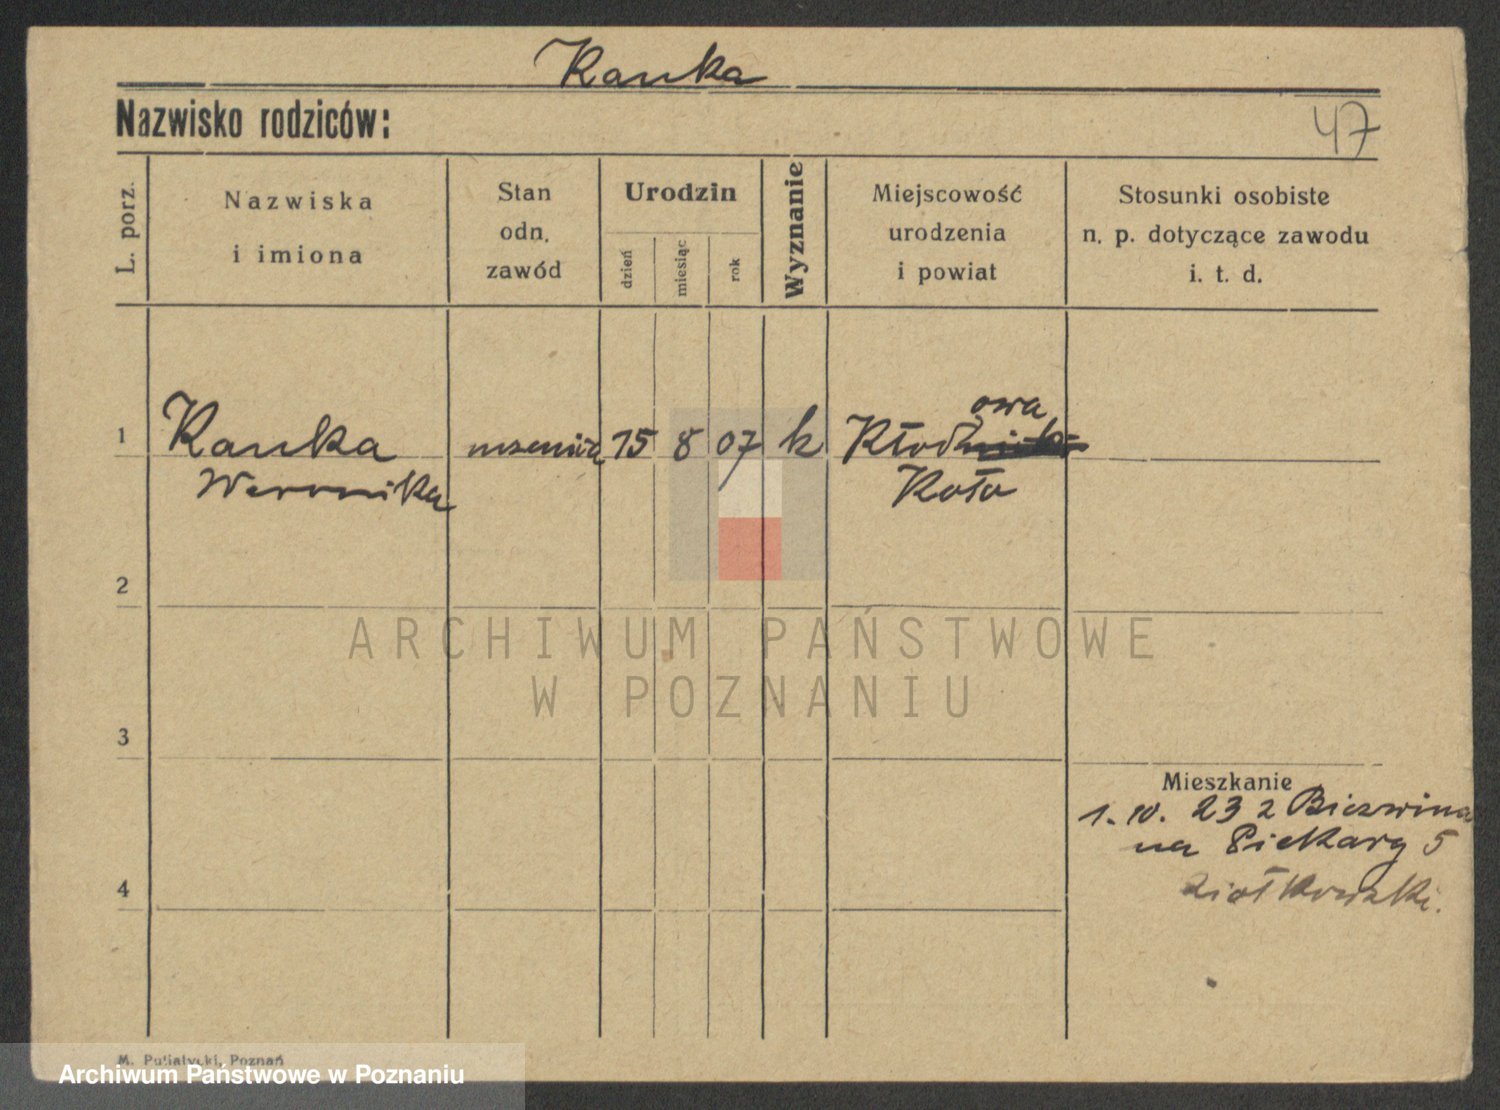 Kauka
Nazwisko rodziców:
47
L. porz.
Nazwiska
i imiona
Stan
odn.
zawód
Urodzin
dzień
miesiąc
rok
Wyznanie
Miejscowość
urodzenia
i powiat
Stosunki osobiste
n. p. dotyczące zawodu
i. t. d.
1 Kauka 15 8 07 k Kłod
owa
Weronika Koło
2
ARCHIWUM PAŃSTWOWE
W POZNANIU
3
Mieszkanie
1. 10. 23 z
na Piekary 5
Ziółkowski.
4
M. Putiatycki, Poznań
Archiwum Państwowe w Poznaniu